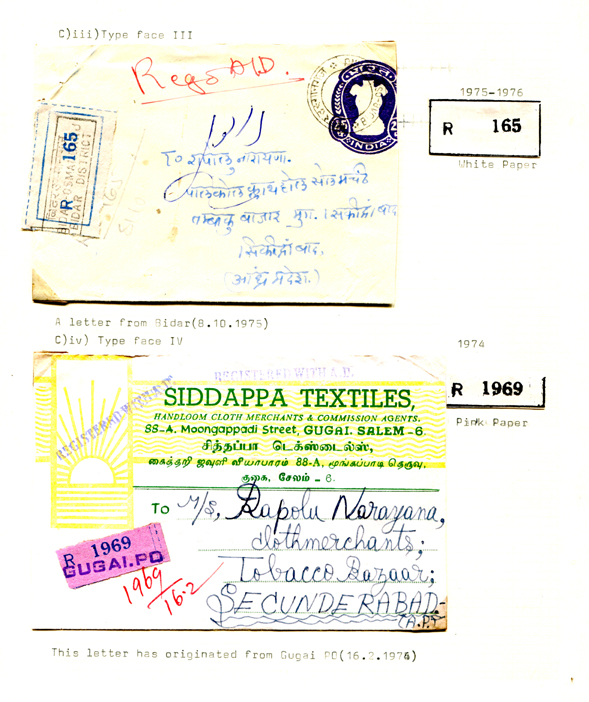 C)iii)Type face III
Regd AD.
1975-1976
R 165
White Paper
R 165
BIDAR DISTRICT
INDIA
To रापोलु नारायणा.
क्लाथ होल सेल मर्चंट
तम्बाकु बाजार
सिकींद्राबाद.
(आंध्र प्रदेश.)
A letter from Bidar(8.10.1975)
C)iv) Type face IV
1974
R 1969
Pink Paper
REGISTERED WITH A.D.
REGISTERED WITH A.D.
SIDDAPPA TEXTILES,
HANDLOOM CLOTH MERCHANTS & COMMISSION AGENTS.
88-A. Moongappadi Street, GUGAI. SALEM-6.
சித்தப்பா டெக்ஸ்டைல்ஸ்,
கைத்தறி ஜவுளி வியாபாரம் 88-A, மூங்கப்பாடி தெரு,
குகை, சேலம் - 6.
To M/S, Rapolu Narayana,
clothmerchants;
Tobacco Bazaar;
SECUNDERABAD-
(A.P)
R 1969
GUGAI.PO
1969
16.2
This letter has originated from Gugai PO(16.2.1974)